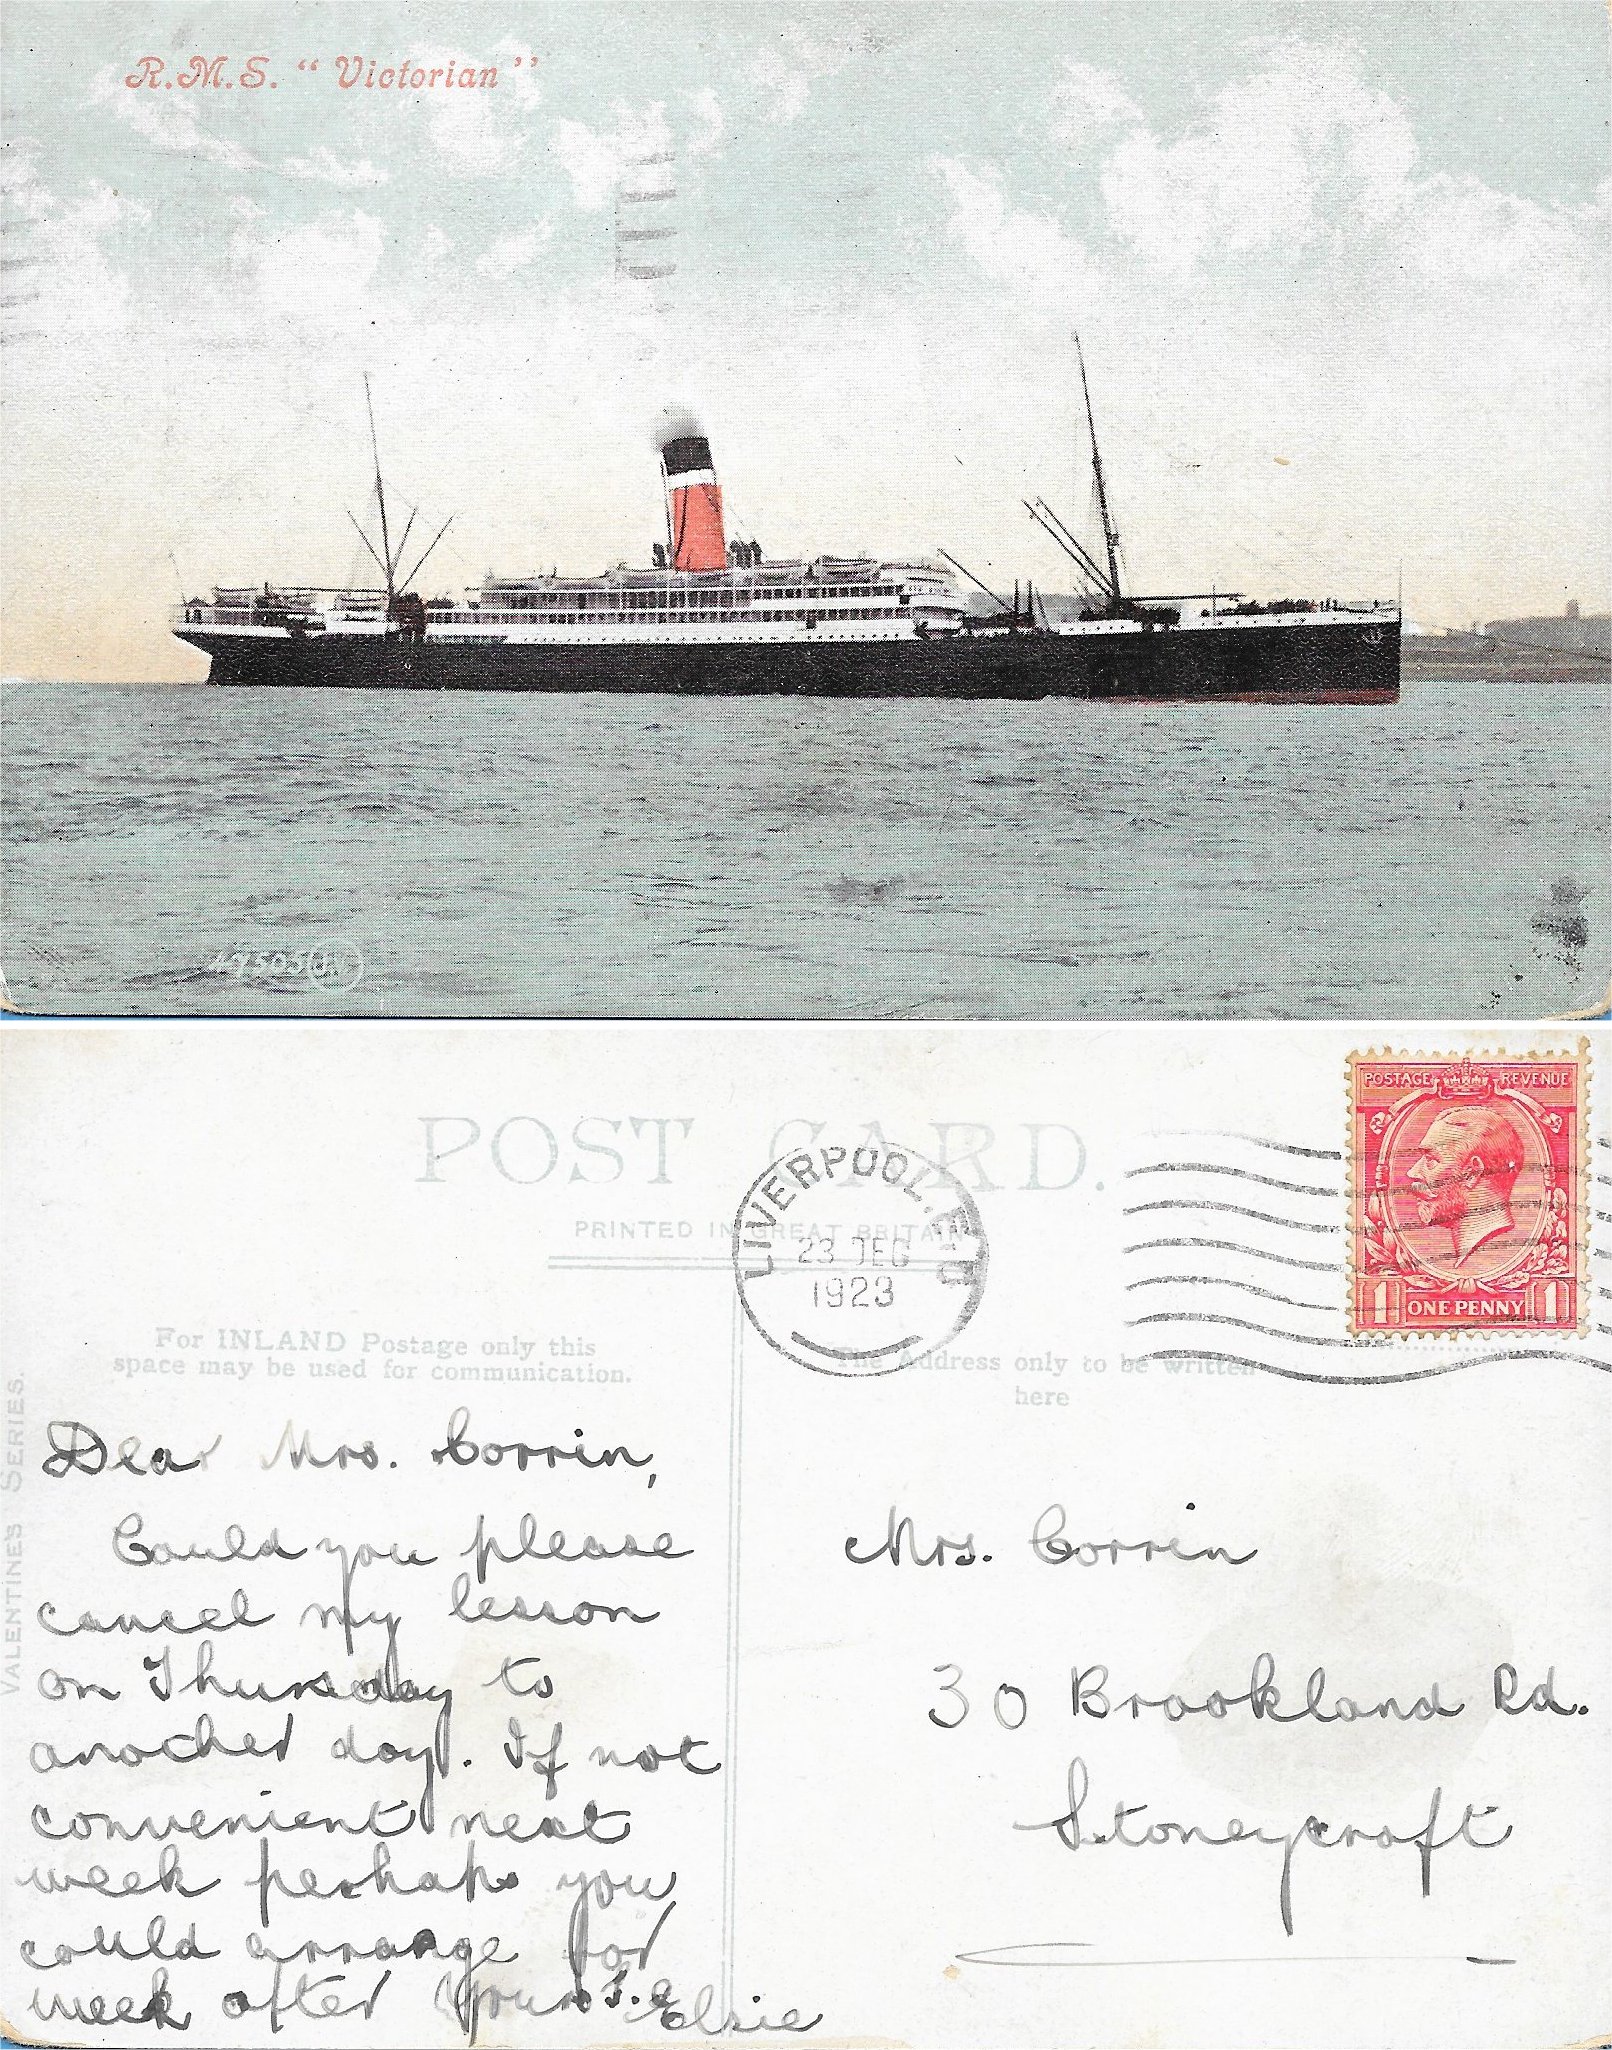 R.M.S. "Victorian"
47503 JV
POST CARD.
PRINTED IN GREAT BRITAIN
POSTAGE REVENUE
1 ONE PENNY 1
LIVERPOOL.
23 DEC
1923
For INLAND Postage only this
space may be used for communication.
The Address only to be written
here
VALENTINE'S SERIES.
Dear Mrs. Corrin,
Could you please
cancel my lesson
on Thursday to
another day. If not
convenient next
week perhaps you
could arrange for
week after Yours Elsie
Mrs. Corrin
30 Brookland Rd.
Stoneycroft